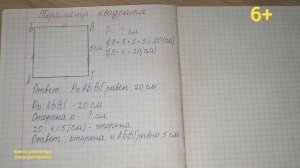 Периметр квадрата
6+
Б В
P = ? см
1) 5 + 5 + 5 + 5 = 20 (см)
5см
2) 5 · 4 = 20 (см)
Ответ: P АБВГ равен 20 см
P АБВГ - 20 см
Сторона а - ? см
20 : 4 = 5 (см) - сторона
Ответ: сторона а АБВГ равна 5 см